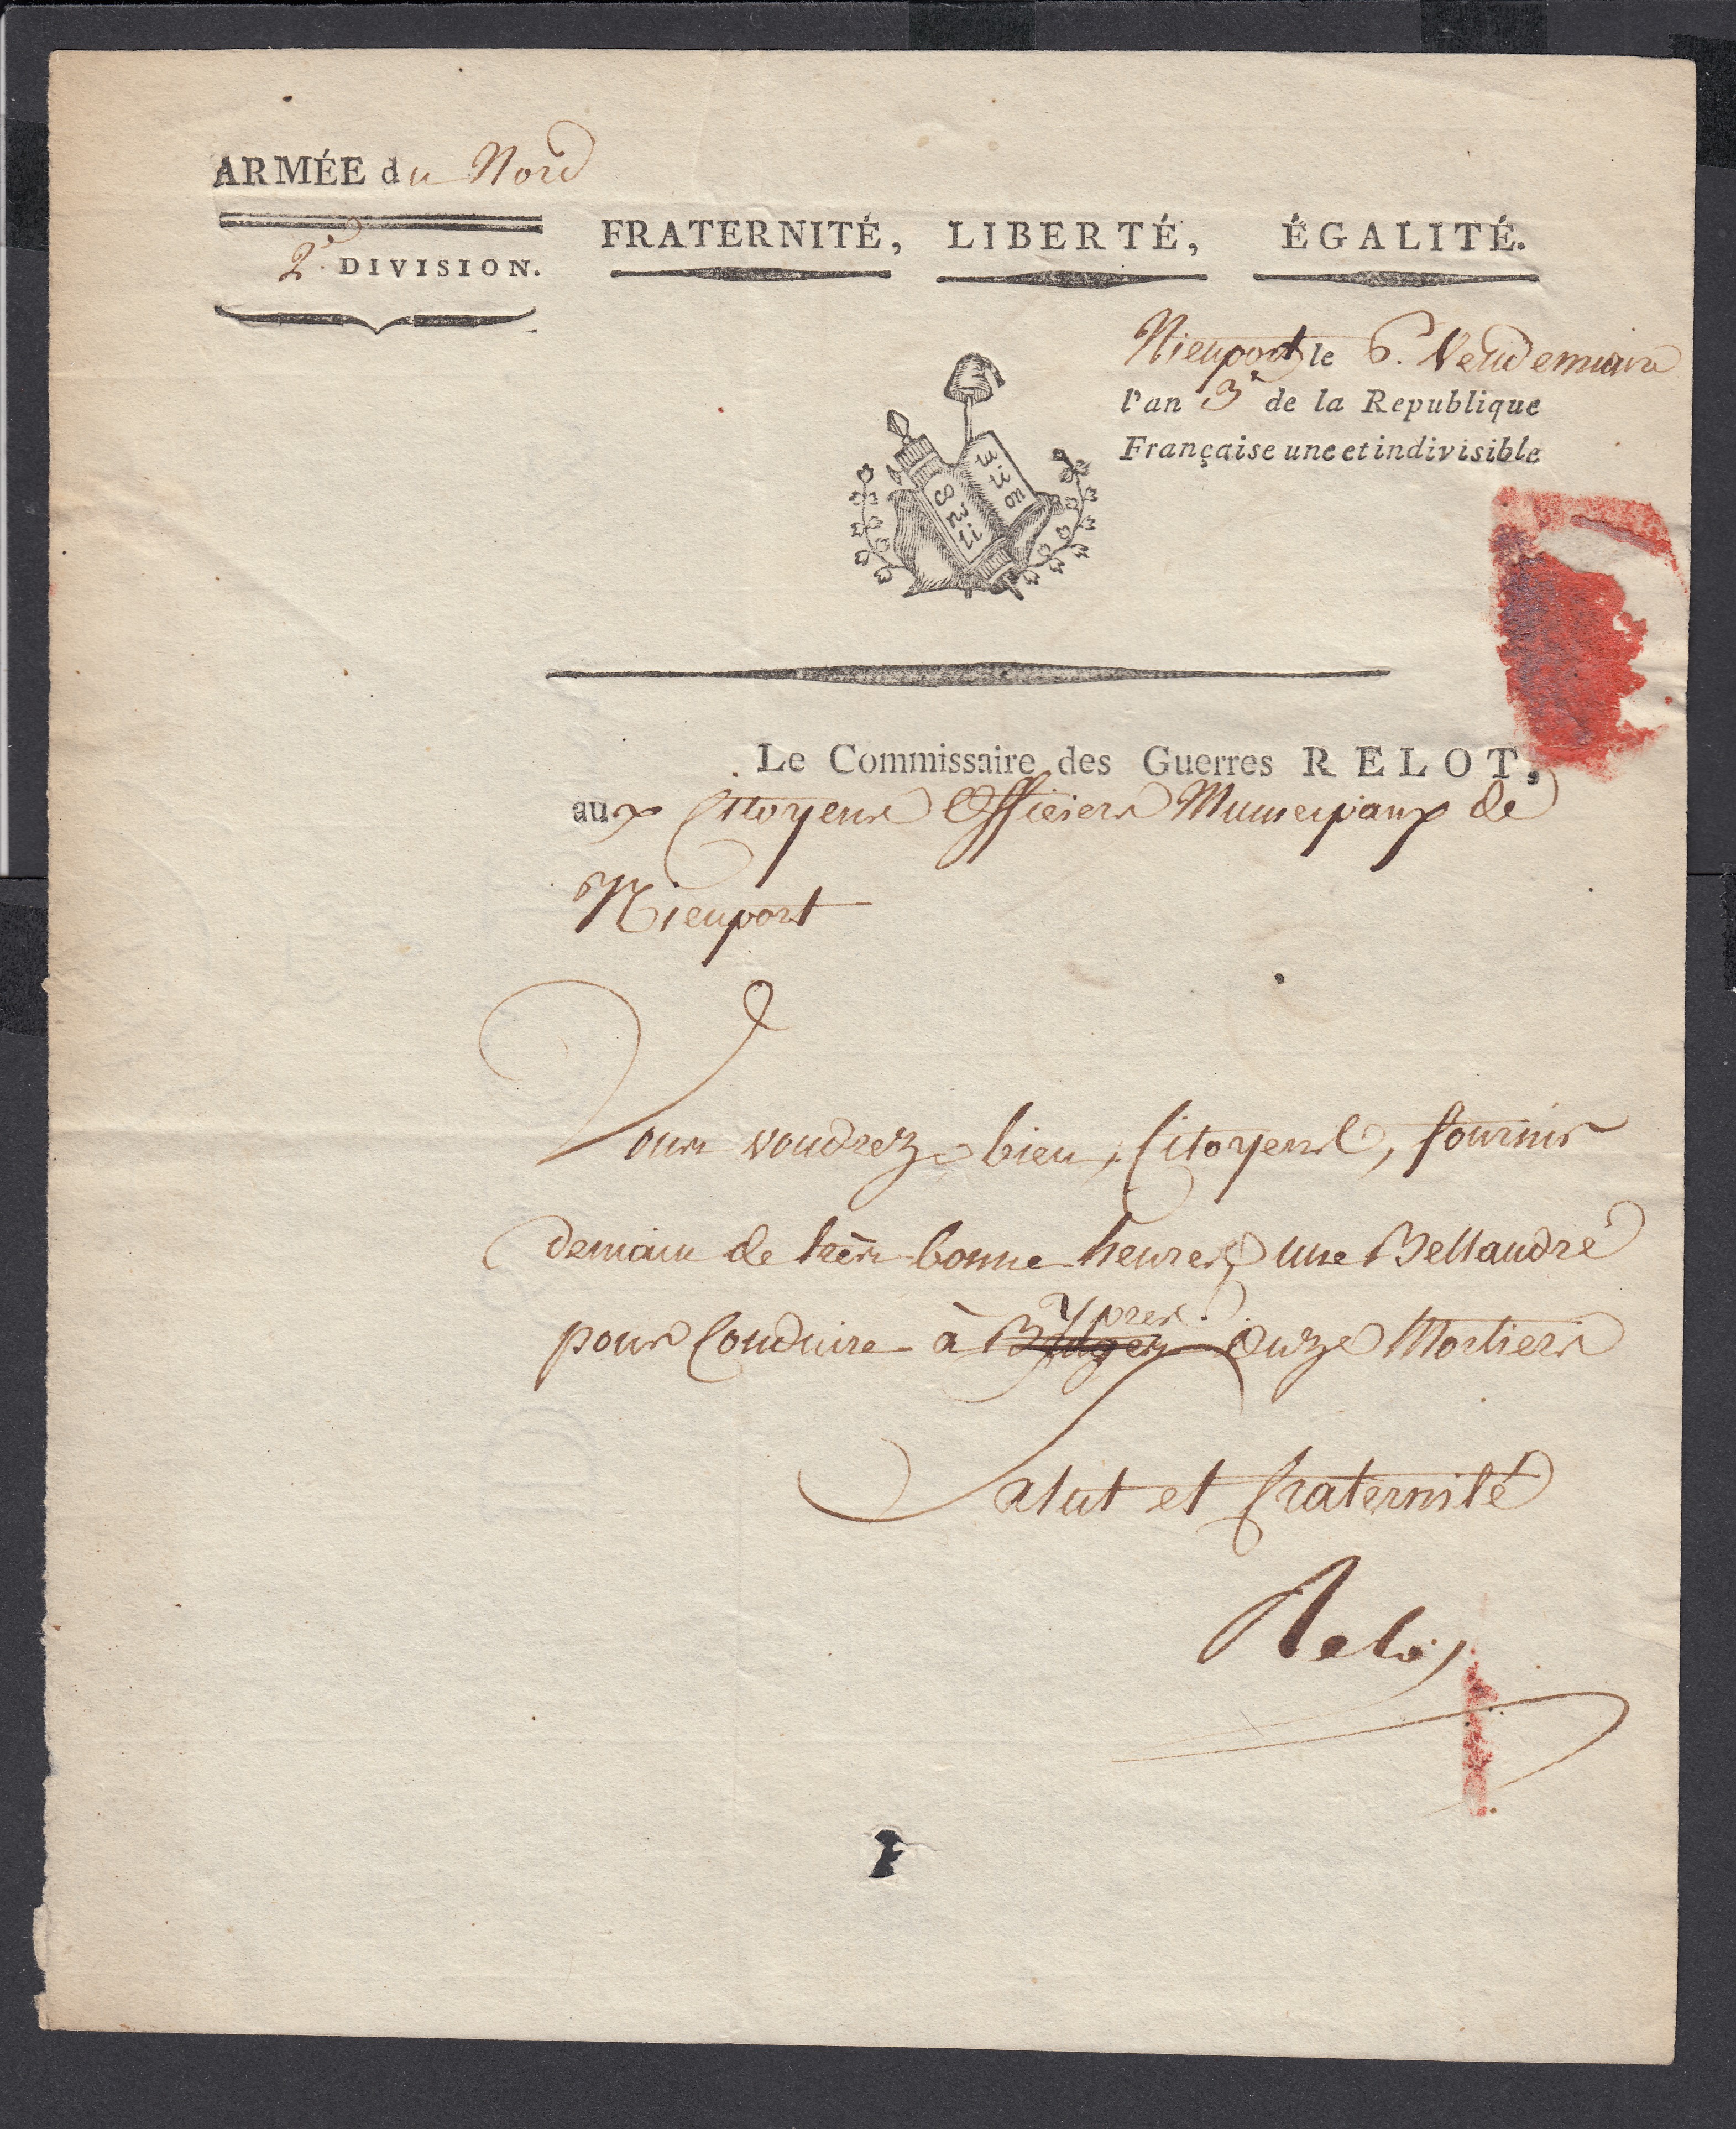 ARMÉE du Nord
2e DIVISION.
FRATERNITÉ, LIBERTÉ, ÉGALITÉ.
Nieuport le 6. Vendemiaire
l'an 3e de la Republique
Française une et indivisible
consti
tution
Le Commissaire des Guerres RELOT,
aux Citoyens Officiers Municipaux de
Nieuport
Vous voudrez bien, Citoyens, fournir
demain de très bonne heure, une Bellandre
Ypres
pour Conduire à Bruges Onze Mortiers
Salut et fraternité
Relot